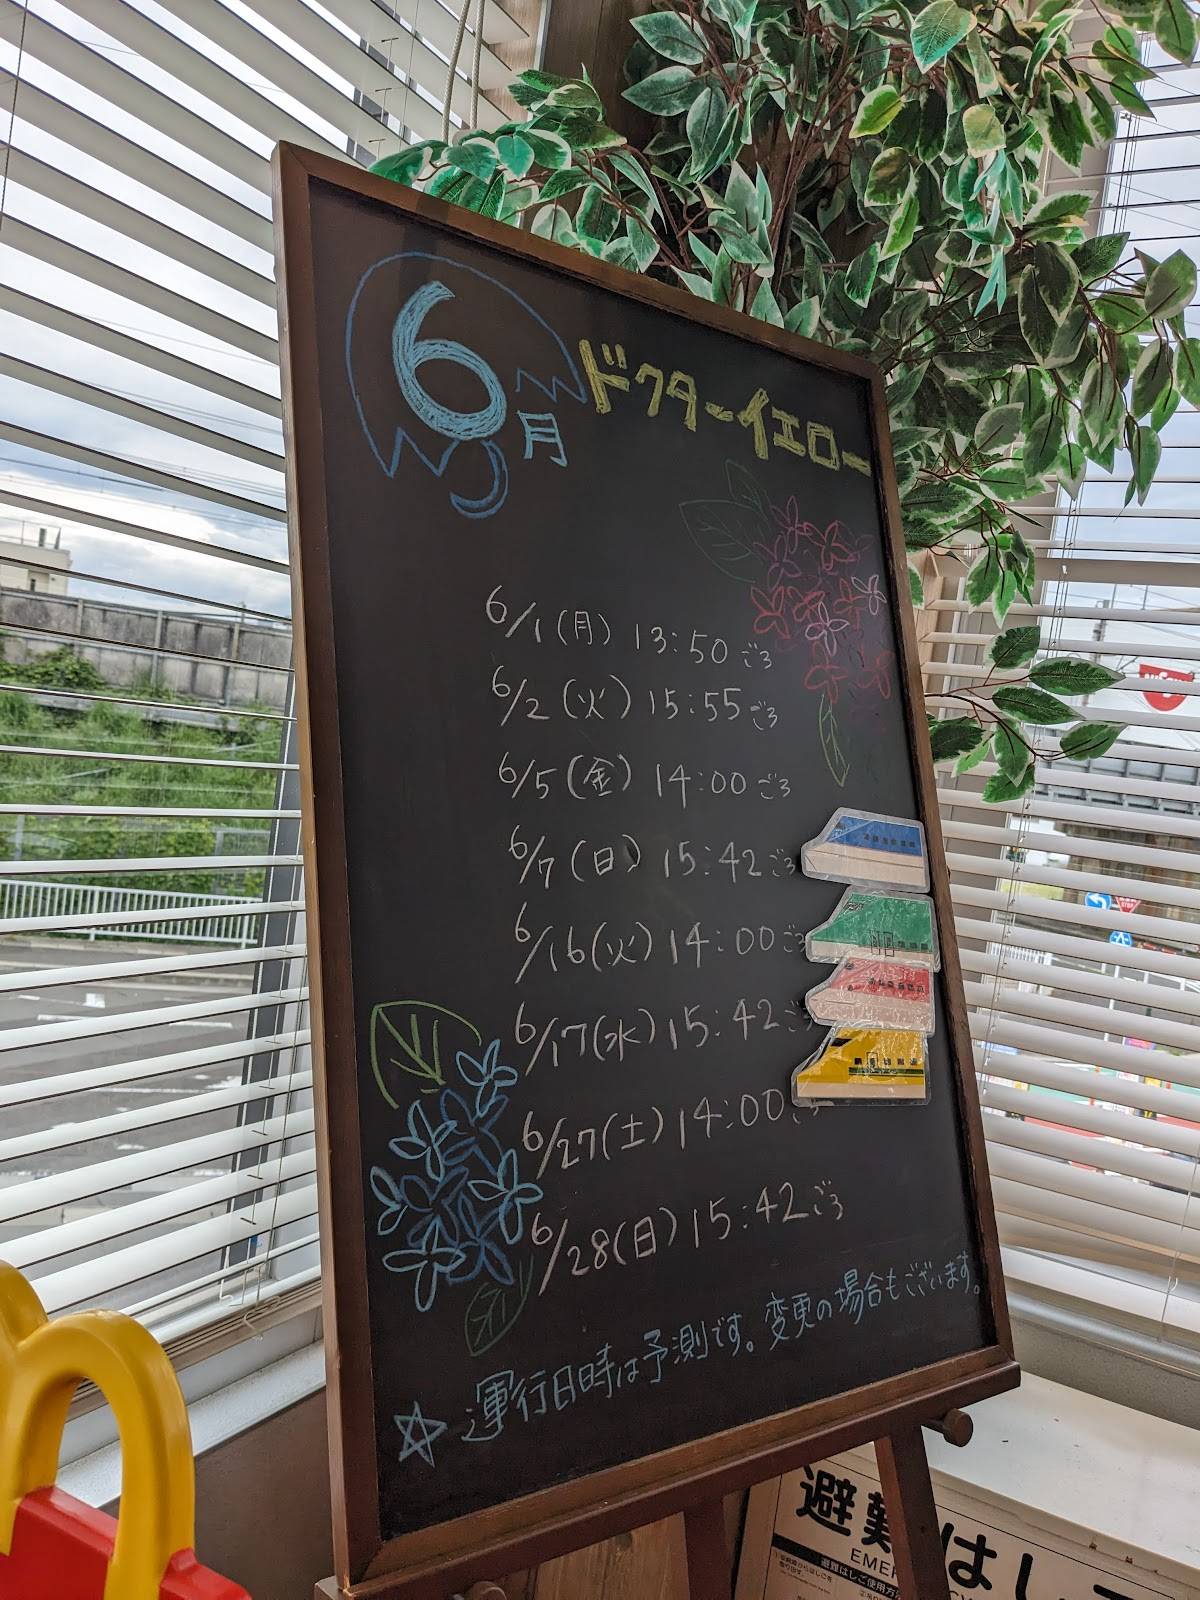 6月
ドクターイエロー
6/1(月) 13:50ごろ
6/2(火) 15:55ごろ
6/5(金) 14:00ごろ
6/7(日) 15:42ごろ
6/16(火) 14:00ごろ
6/17(水) 15:42ご
6/27(土) 14:00ごろ
6/28(日) 15:42ごろ
☆ 運行日時は予測です。変更の場合もございます。
避難はし
EMER
CY
避難はしご使用方